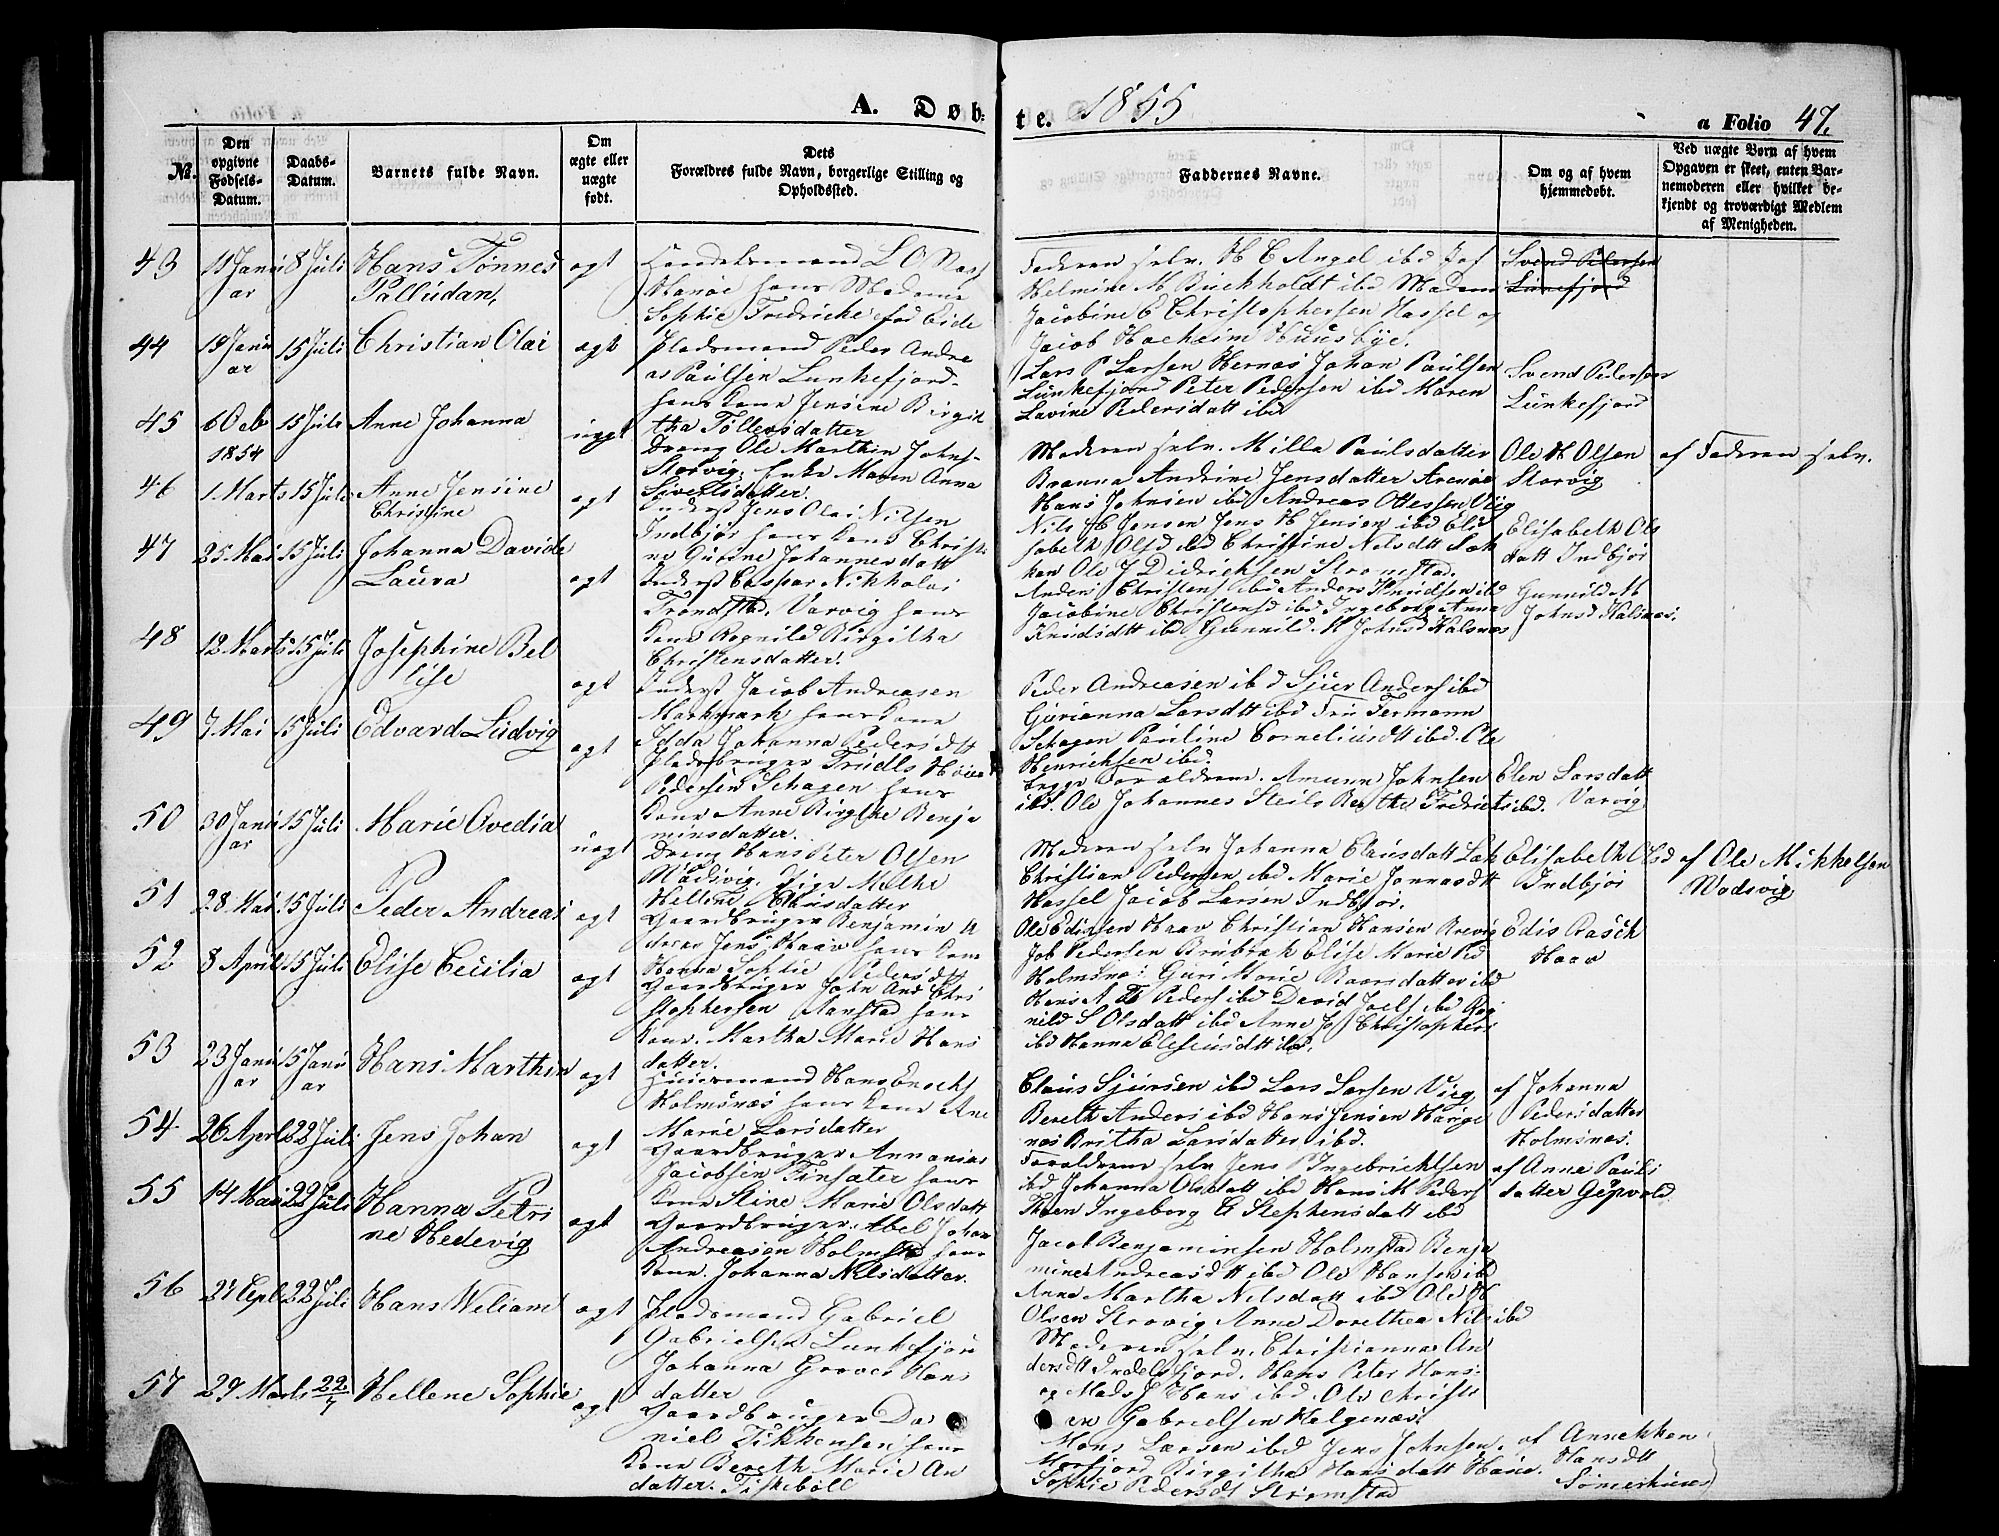 A. Døb-
te. 1855
a Folio 47.
No.
Den opgivne Fødsels-Datum.
Daabs-Datum.
Barnets fulde Navn.
Om ægte eller uægte født.
Dets Forældres fulde Navn, borgerlige Stilling og Opholdssted.
Faddernes Navne.
Om og af hvem hjemmedøbt.
Ved uægte Børn af hvem Opgaven er skeet, enten Barnemoderen eller hvilket bekjendt og troværdigt Medlem af Menigheden.
43 11 Janu 8 Juli Hans Tønnes ægt Handelsmand L O
ar Palludan, Hanøe hans Madame
Sophie Fredrikke fød Eide
Faderen selv. H C Angel ibd
Helmine M Buckholdt ibd Madame
Jacobine E Christophersen Hassel og
Jacob Huusbye.
Svend Pedersen
Lunkefjord
44 19 Janu 15 Juli Christian Olai ægt Pladsmand Peder Andre
ar as Paulsen Lunkefjord
hans Kone Jensine Birgit
tha Tollersdatter
Lars P Larsen Hernæs Johan Paulsen
Lunkefjord Peter Pedersen ibd Maren
Lavine Pedersdatt ibd
Svend Pedersen
Lunkefjord
45 6 Octb 15 Juli Anne Johanna uægt
1854
Dreng Ole Marthin Johns
Storvig. Enke Maren Anna
Sivertsdatter.
Moderen selv. Milla Paulsdatter
Brenna Andrine Jensdatter Arenøe
Hans Johnsen ibd Andreas Ottessen Viig
Ole H Olsen
Storvig
af Faderen selv.
46 1 Marts 15 Juli Anne Jensine ægt
Christine
Inderst Jens Olai Nilsen
Indbjør hans Kone Christi
ne Johannesdatt
Nils H Jensen Jens H Jensen ibd Eli
sabeth Olsd ibd Christine Nilsdtt
Ole J Didrichsen Strømstad.
Elisabeth Ols
datt Indbjør
47 25 Mai 15 Juli Johanna Davide ægt
Laura
Inderst Caspar Nikkolai
Trondstad, Varvig hans
Kone Rognild Birgitha
Christensdatter.
Anders Christens ibd Anders Knudsen ibd
Jacobine Christensd ibd Ingeborg Anna
Knudsdtt ibd Gunnild M Johnsd Kalsnæs
Gunnild M
Johnsd Kalsnæs.
48 12 Marts 15 Juli Josephine Bel ægt
lise
Inderst Jacob Andreasen
Markmark hans Kone
Idda Johanna Pedersdtt
Peder Andreasen ibd Sjur Anders ibd
Gurianna Larsdtt ibd Fru Fermann
Skagen Pauline Corneliusdtt ibd. Ole
Henrichsen ibd.
49 7 Mai 15 Juli Edvard Ludvig ægt
Pladsbruger Truels
Pedersen Skagen hans
Kone Anne Birgithe Benja
minsdatter.
begge Forældrene. Amund Johnsen
ibd. Ole Johannes Steils Berthe Fredrichs ibd.
Elen Larsdatt
Varvig
50 30 Janu 15 Juli Marie Ovedia uægt
ar
Dreng Hans Peter Olsen
Madsvig. Pige Malhe
Hellene Clausdatter
Moderen selv Johanna Clausdatt
Christian Pedersen ibd Marie Jonnasdtt
Hassel Jacob Larsen Indbjør.
Elisabeth Olsd
Indbjør
af Ole Mikkelsen
Wodsvig
51 28 Mai 15 Juli Peder Andreas ægt
Gaardbruger Benjamin A
Jens Haav hans Kone
Hanna Sophie Pedersdtt
Ole Edissen Haav Christian Hansen
Job Pedersen Brubræk Elise Marie Ped
Holmsnæs Guri Marie Baarsdatter ibd
Edis Rasch
Haav
52 8 April 15 Juli Elise Cecilia ægt
Gaardbruger John And Chri
stophersen Hanstad hans
Kone. Martha Marie Hans
datter.
Hans A Peders ibd David Joels ibd Rag
nild S Olsdatt ibd Anne Jos Christophers
ibd Hanna Eliseusdtt ibd.
53 23 Janu 15 Janu Hans Marthin ægt
ar ar
Huusmand Hans Enochs
Holmsnæs hans Kone Ane
Marie Larsdatter
Claus Sjursen ibd Lars Larsen Viig
Bereth Anders ibd Hans Jensen
næs Britha Larsdatter ibd.
af Johanna
Pedersdatter
Holmsnæs.
54 26 April 22 Juli Jens Johan ægt
Gaardbruger Annanias
Jacobsen Finsæter hans
Kone Stine Marie Olsdatt
Forældrene selv Jens P Ingebrichtsen
ibd Johanna Olsdatt ibd Hans M Peders
Ingeborg G Stephensdatt ibd
af Anne Pauls
datter
55 14 Mai 22 Juli Hanna Petri ægt
ne Hedevig
Gaardbruger Abel Johan
Andreasen Holmstad hans
Kone. Johanna Nilsdatter.
Jacob Benjaminsen Holmstad Benja
mine Andreasdtt ibd Ole Hansen ibd
Anne Martha Nilsdatt ibd Ole H
Olsen Storvig Anne Dorethea Nils ibd
56 22 Juli Hans Wiliam ægt
Pladsmand Gabriel
Gabrielsen Lunkefjord
Johanna Hans
datter
Moderen selv. Christianna An
dersdtt Indelsfjord. Hans Peter Hans
og Mads J Hans ibd. Ole Christi
en Gabrielsen Helgenæs.
57 29 Marts 22/7 Hellene Sophie ægt
Gaardbruger Da
niel Tikkensen hans
Kone Bereth Marie An
datter. Fiskebøll
Mons Larsen ibd Jens Johnsen.
Morfjord Birgitha Hansdatt Hanøe.
Sophie Pedersdt Strømstad
af Annekken
Hansdtt
Sommerhuus